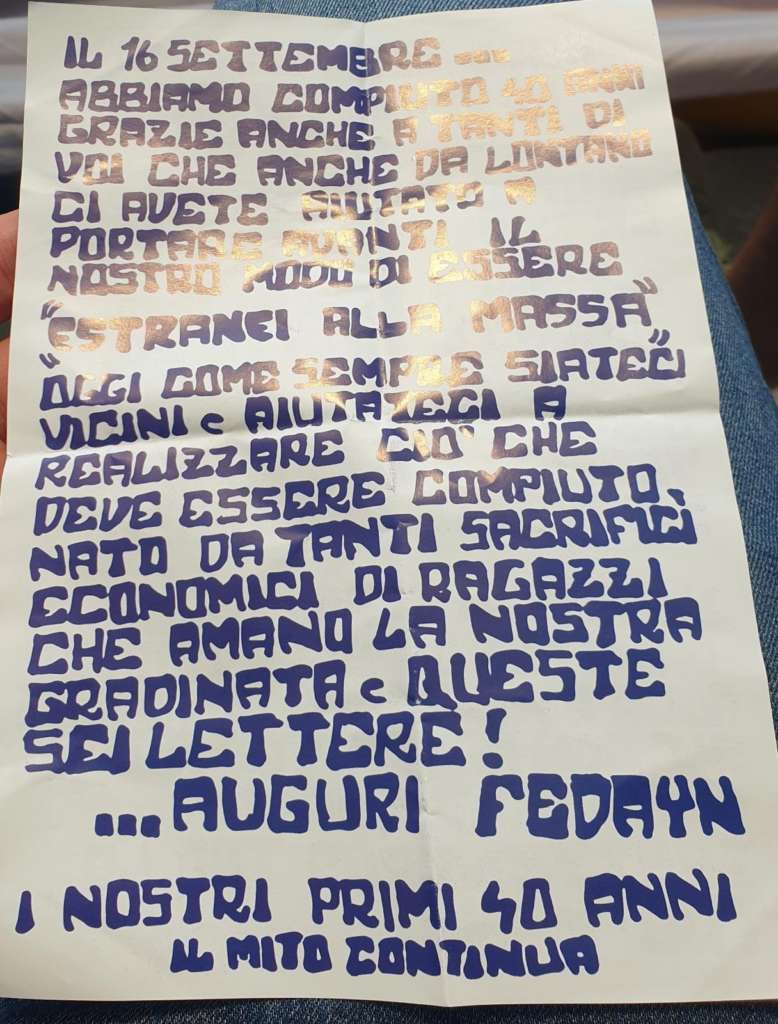 IL 16 SETTEMBRE ...
ABBIAMO COMPIUTO 40 ANNI
GRAZIE ANCHE A TANTI DI
VOI CHE ANCHE DA LONTANO
CI AVETE AIUTATO A
PORTARE AVANTI IL
NOSTRO MODO DI ESSERE
"ESTRANEI ALLA MASSA"
"OGGI COME SEMPRE SIATECI"
VICINI e AIUTATECI A
REALIZZARE CIO' CHE
DEVE ESSERE COMPIUTO,
NATO DA TANTI SACRIFICI
ECONOMICI DI RAGAZZI
CHE AMANO LA NOSTRA
GRADINATA e QUESTE
SEI LETTERE!
...AUGURI FEDAYN
I NOSTRI PRIMI 40 ANNI
IL MITO CONTINUA